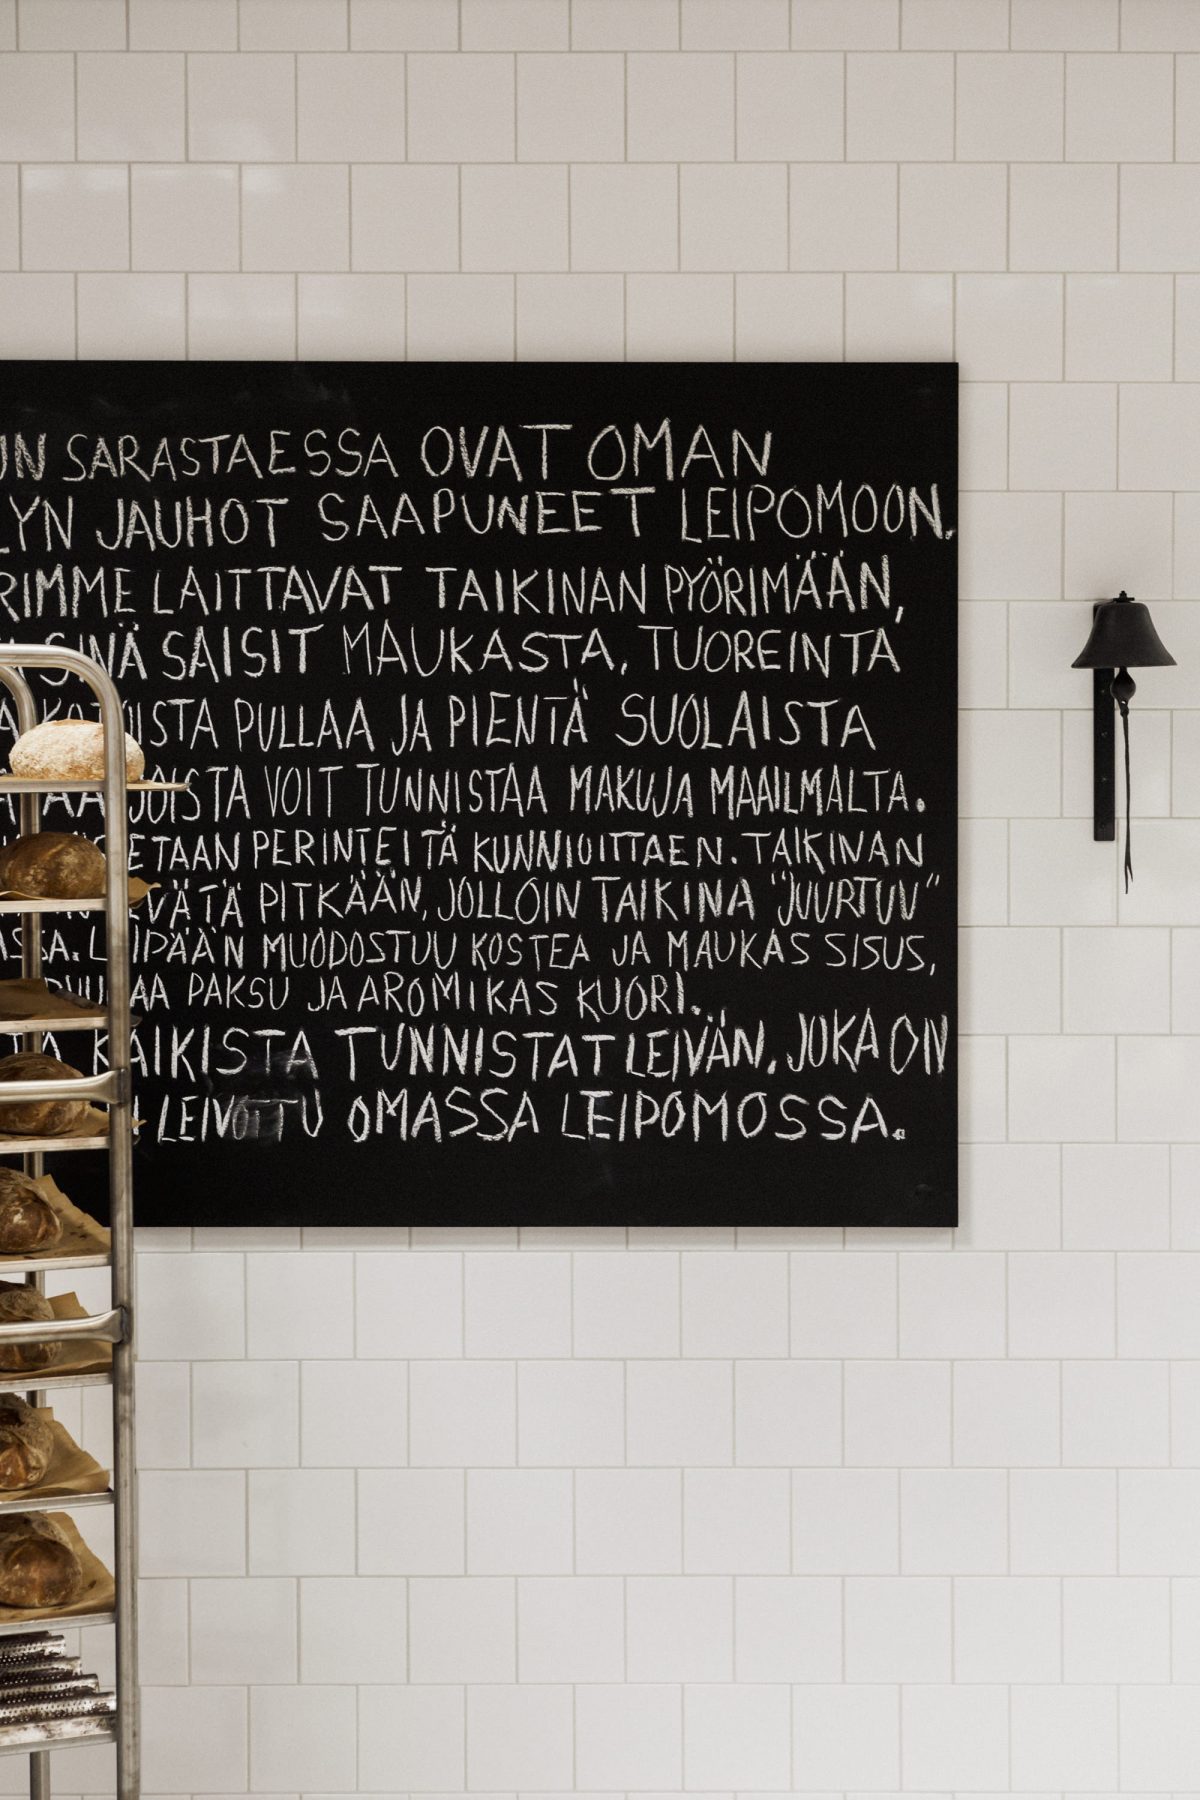 SARASTAESSA OVAT OMAN
JAUHOT SAAPUNEET LEIPOMOON.
LAITTAVAT TAIKINAN PYÖRIMÄÄN,
SINÄ SAISIT MAUKASTA, TUOREINTA
PULLAA JA PIENTÄ SUOLAISTA
VOIT TUNNISTAA MAKUJA MAAILMALTA.
PERINTEITÄ KUNNIOITTAEN. TAIKINAN
PITKÄÄN, JOLLOIN TAIKINA "JUURTUU"
LEIPÄÄN MUODOSTUU KOSTEA JA MAUKAS SISUS,
PAKSU JA AROMIKAS KUORI.
KAIKISTA TUNNISTAT LEIVÄN, JOKA ON
LEIVOTTU OMASSA LEIPOMOSSA.